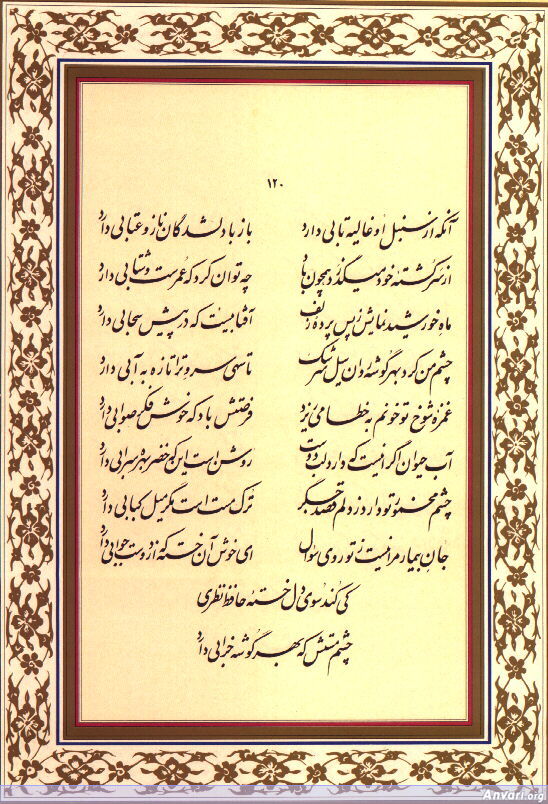 ۱۲۰
آنکه از سنبل او غالیه تابی دارد باز با دلشدگان ناز و عتابی دارد
از سر کشتهٔ خود میگذرد همچون باد چه توان کرد که عمرست و شتابی دارد
ماه خورشید نمایش ز پس پرده زلف آفتابیست که در پیش سحابی دارد
چشم من کرد بهر گوشه روان سیل سرشک تا سهی سرو ترا تازه به آبی دارد
غمزه شوخ تو خونم به خطا می ریزد فرصتش باد که خوش فکر صوابی دارد
آب حیوان اگر اینست که دارد لب دوست روشن است این که خضر بهره سرابی دارد
چشم مخمور تو دارد ز دلم قصد جگر ترک مست است مگر میل کبابی دارد
جان بیمار مرا نیست ز تو روی سؤال ای خوش آن خسته که از دوست جوابی دارد
کی کند سوی دل خستهٔ حافظ نظری
چشم مستش که بهر گوشه خرابی دارد
Anvari.org